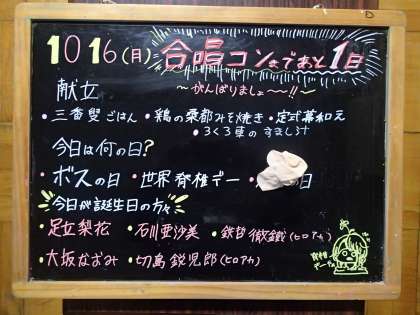 10 16(月) 合唱コンまであと1日
~がんばりましょ~!!~
献立
・三番叟ごはん ・鶏の桑都みそ焼き ・定式幕和え
・ろくろ車のすまし汁
今日は何の日?
・ボスの日 ・世界脊椎デー ・ の日
今日が誕生日の方々
・足立梨花 ・石川亜沙美 ・鉄哲徹鐵(ヒロアカ)
・大坂なおみ ・切島鋭児郎(ヒロアカ)